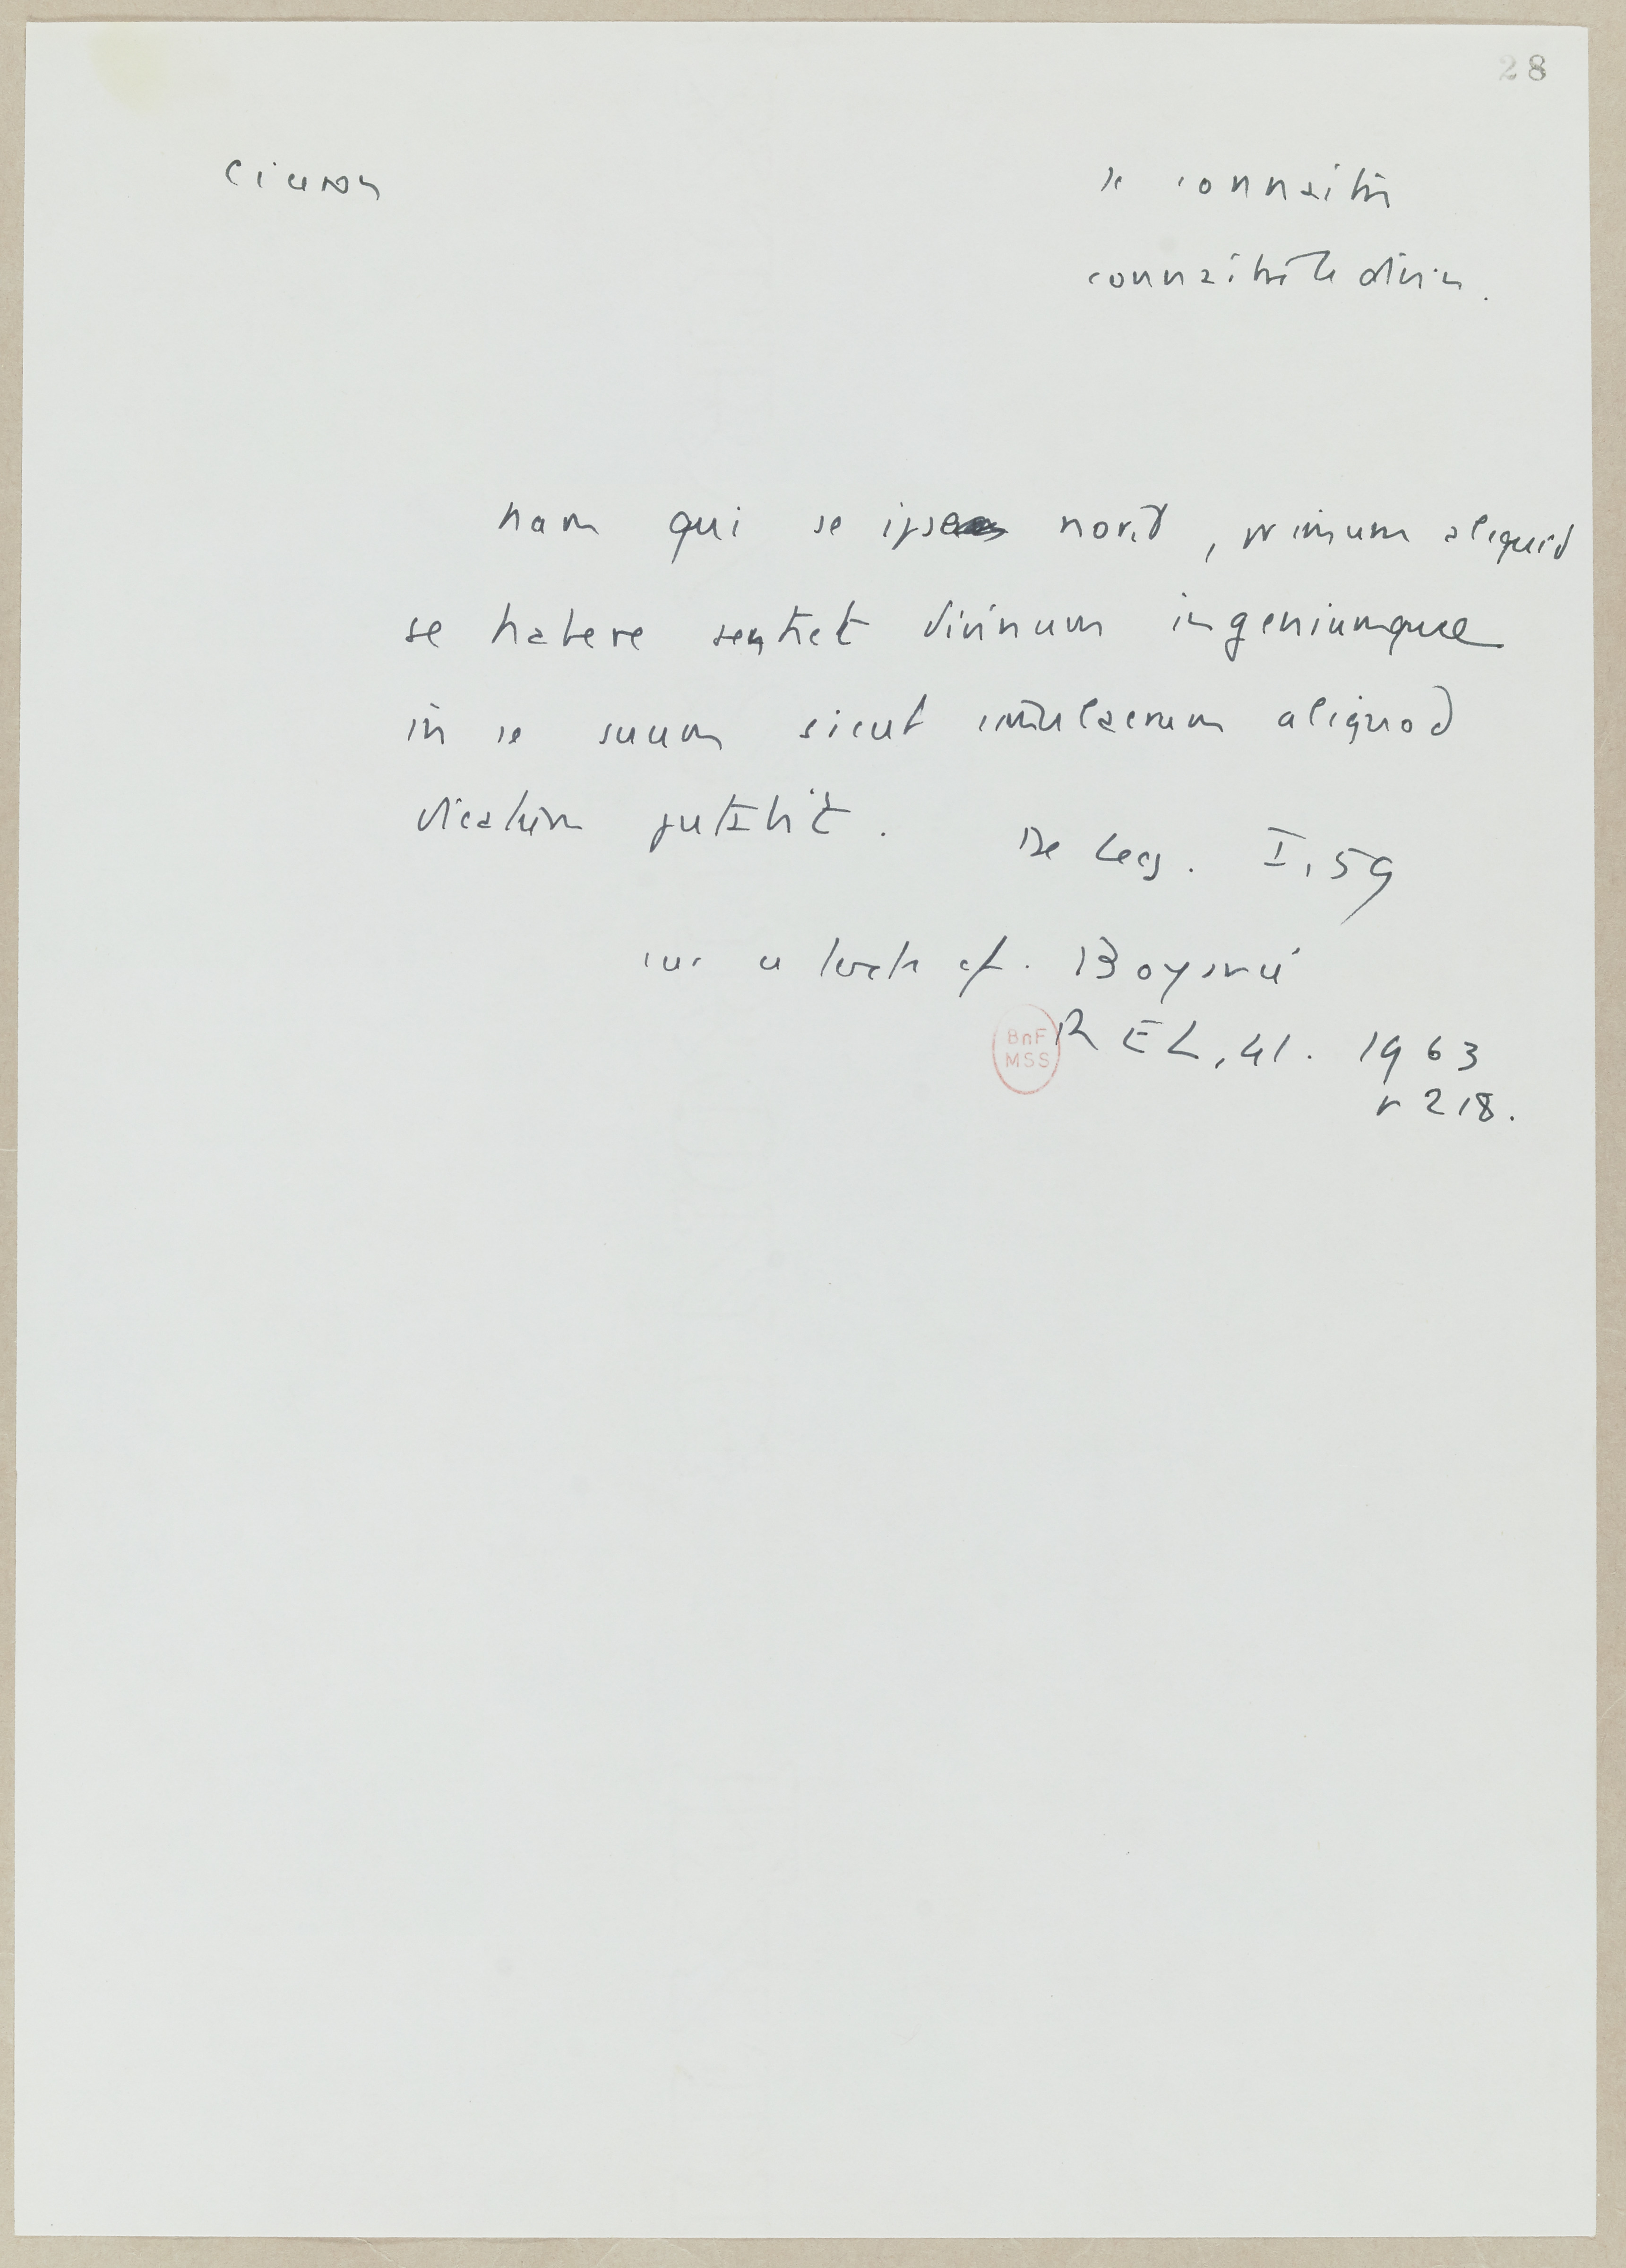 28
Ciceron
se connaitre
connaitre le divin.
nam qui se ipse norit, primum aliquid
se habere sentiet divinum ingeniumque
in se suum sicut simulacrum aliquod
dicatum putabit.
De Leg. I, 59
sur ce texte cf. Boyancé
BnF
MSS
REL, 41. 1963
p 218.